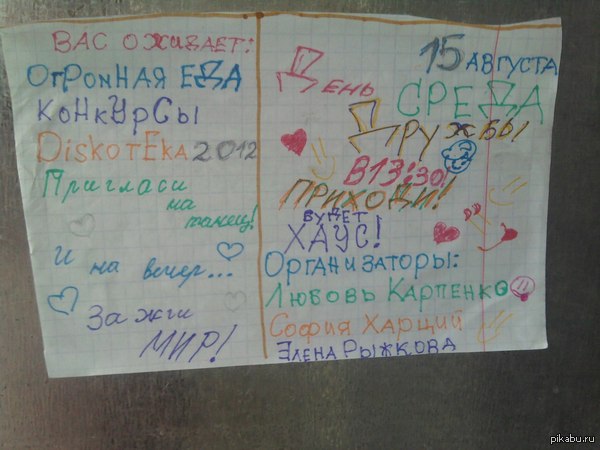 ВАС ОЖИДАЕТ:
ОГРОМНАЯ ЕДА
КОНКУРСЫ
DiskotEka 2012
Пригласи
на
танец!
И на вечер...
Зажги
МИР!
15 АВГУСТА
СРЕДА
День
Дружбы
В 13:30!
ПРИХОДИ!
БУДЕТ
ХАУС!
Организаторы:
Любовь Карпенко
София Харций
Элена Рыжкова
pikabu.ru